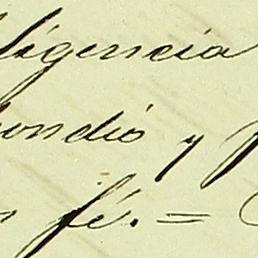 ligencia
ondió y
fé. =